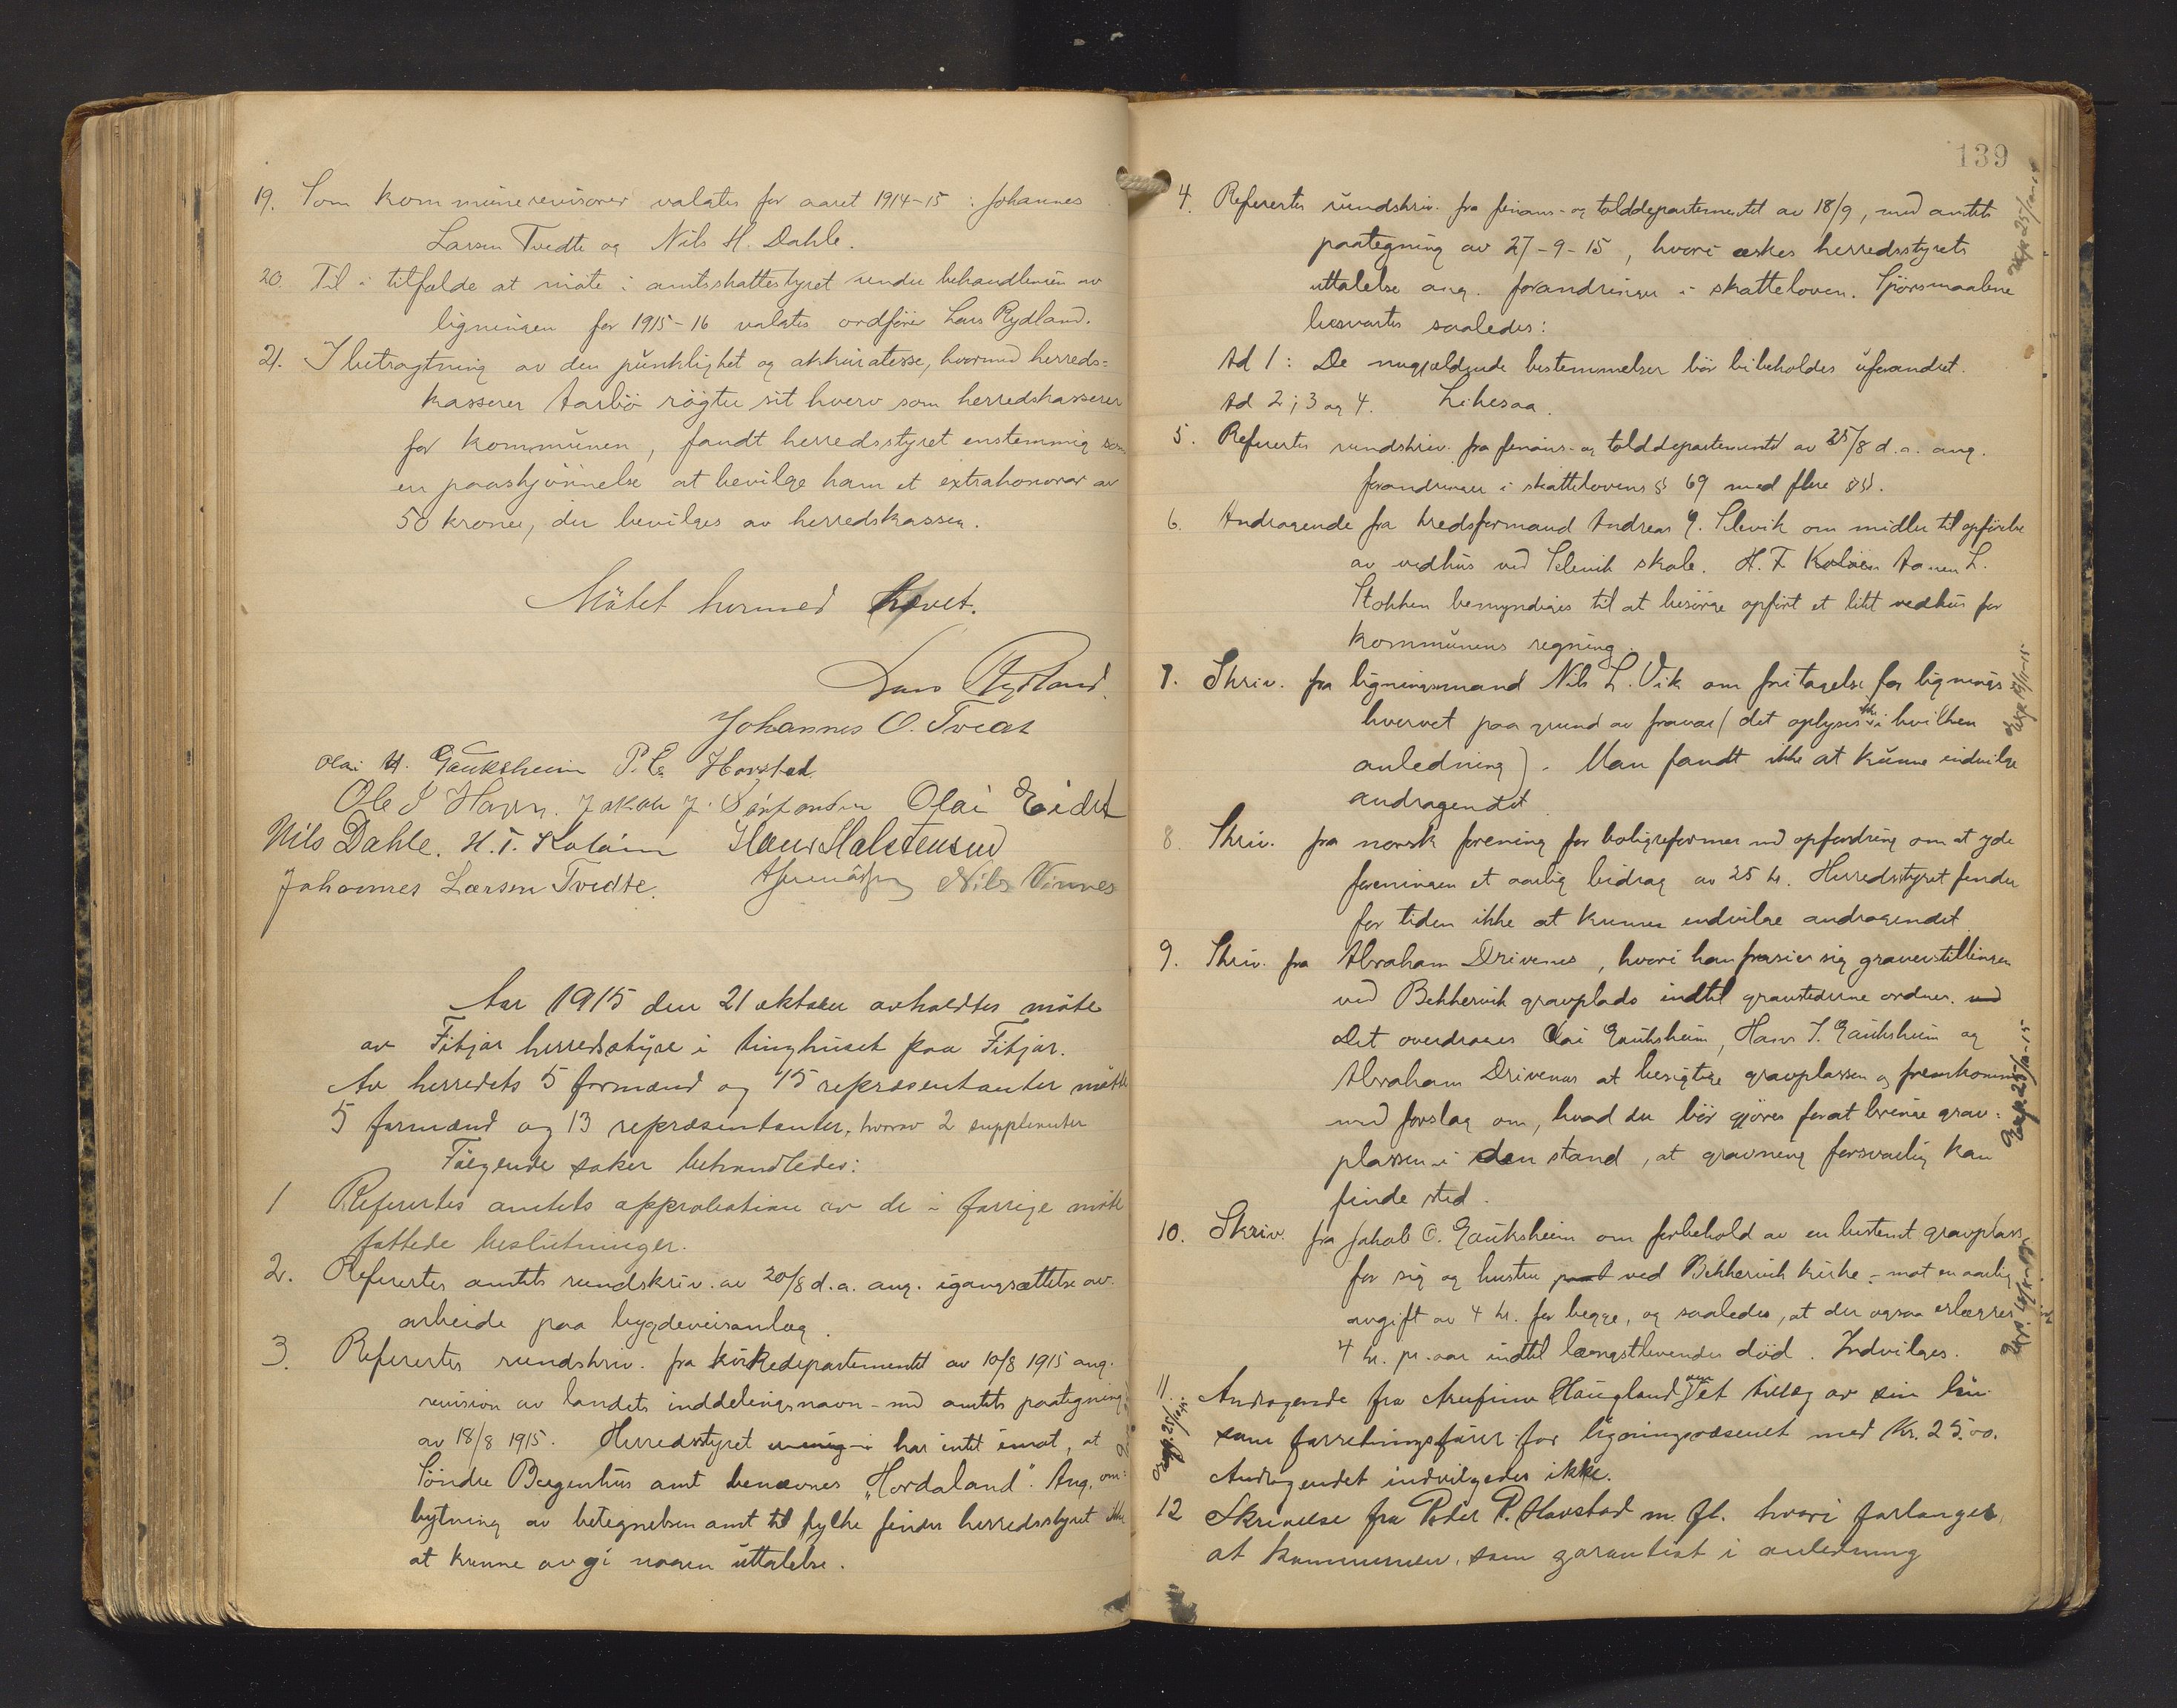 19. Som kommunerevisorer valgtes for aaret 1914-15: Johannes
Larsen Tvedte og Nils H. Dahle.
20. Til i tilfælde at møte i amtsskattestyret under behandlingen av
ligningen for 1915-16 valgtes ordfører Lars Rydland.
21. I betragtning av den punklighet og akkuratesse, hvormed herreds=
kasserer Aarbø røgter sit hverv som herredskasserer
for kommunen, fandt herredsstyret enstemmig som
en paaskjønnelse at bevilge ham et extrahonorar av
50 kroner, der bevilges av herredskassen.
Møtet hermed hævet.
Lars Rydland.
Johannes O. Tveit
Olai H. Gauksheim P. Havstad
Ole J Jakob J. Olai Eide
Nils Dahle. H. T. Koløen Hans Halstensen
Johannes Larsen Tvedte. Nils Vinnes
Aar 1915 den 21 oktober avholdtes møte
av Fitjar herredsstyre i tinghuset paa Fitjar.
Av herredets 5 formænd og 15 repræsentanter møtte
5 formænd og 13 repræsentanter, hvorav 2 suppleanter
Følgende saker behandledes:
1 Refertes amtets approbation av de i forrige møte
fattede beslutninger.
2. Refertes amtets rundskriv. av 20/8 d.a. ang. igangsættelse av
arbeide paa bygdeveisanlæg.
3. Refertes rundskriv. fra kirkedepartementet av 10/8 1915 ang.
revision av landets inddelingsnavn - med amtets paategning
av 18/8 1915. Herredsstyret har intet imot, at
Søndre Bergenhus amt benævnes „Hordaland“. Ang. om=
bytning av betegnelsen amt til fylke finder herredsstyret ikke
at kunne avgi nogen uttalelse.
139
4. Refertes rundskriv. fra finans- og tolddepartementet av 18/9, med amtets
paategning av 27-9-15, hvori æskes herredsstyrets
uttalelse ang. forandringer i skatteloven. Spørsmaalene
besvartes saaledes:
Ad 1: De nugjældende bestemmelser bør bibeholdes uforandret.
Ad 2, 3 og 4. Likesaa.
5. Refertes rundskriv. fra finans- og tolddepartementet av 25/8 d.a. ang.
forandringer i skattelovens § 69 med flere §§.
6. Andragende fra kredsformand Andreas G. Selevik om midler til opførelse
av vedhus ved Selevik skole. H. T. Koløen L.
Stokken bemyndiges til at besørge opført et litet vedhus for
kommunens regning.
7. Skriv. fra ligningsmand Nils L. Vik om fritagelse for lignings
hvervet paa grund av fravær (det oplyses ikke i hvilken
anledning). Man fandt ikke at kunne indvilge
andragendet
8. Skriv. fra norsk forening for boligreformer med opfordring om at yde
foreningen et aarlig bidrag av 25 kr. Herredsstyret finder
for tiden ikke at kunne indvilge andragendet
9. Skriv. fra Abraham Drivenes, hvori han frasier sig graverstillingen
ved Bekkervik gravplads indtil gravstederne ordnes. med
Det overdrages Olai Gauksheim, Hans J. Gauksheim og
Abraham Drivenes at besigtige gravplassen og fremkomme
med forslag om, hvad der bør gjøres for at bringe grav=
plassen i den stand, at gravning forsvarlig kan
finde sted.
10. Skriv. fra Jakob O. Gauksheim om forbehold av en bestemt gravplass
for sig og hustru paa ved Bekkervik kirke - mot en aarlig
avgift av 4 kr. for begge, og saaledes, at der ogsaa erlægges
4 kr. pr. aar indtil længstlevendes død. Indvilges.
11. Andragende fra Haugland om et tillæg av sin løn
som forretningsfører for ligningsvæsenet med Kr. 25.00.
Andragendet indvilgedes ikke.
12 Skrivelse fra Peder P. Havstad m. fl. hvori forlanges,
at kommunen, som garantist i anledning
Exp. 25/10-15
Exp. 25/10-15
Exp. 25/10-15